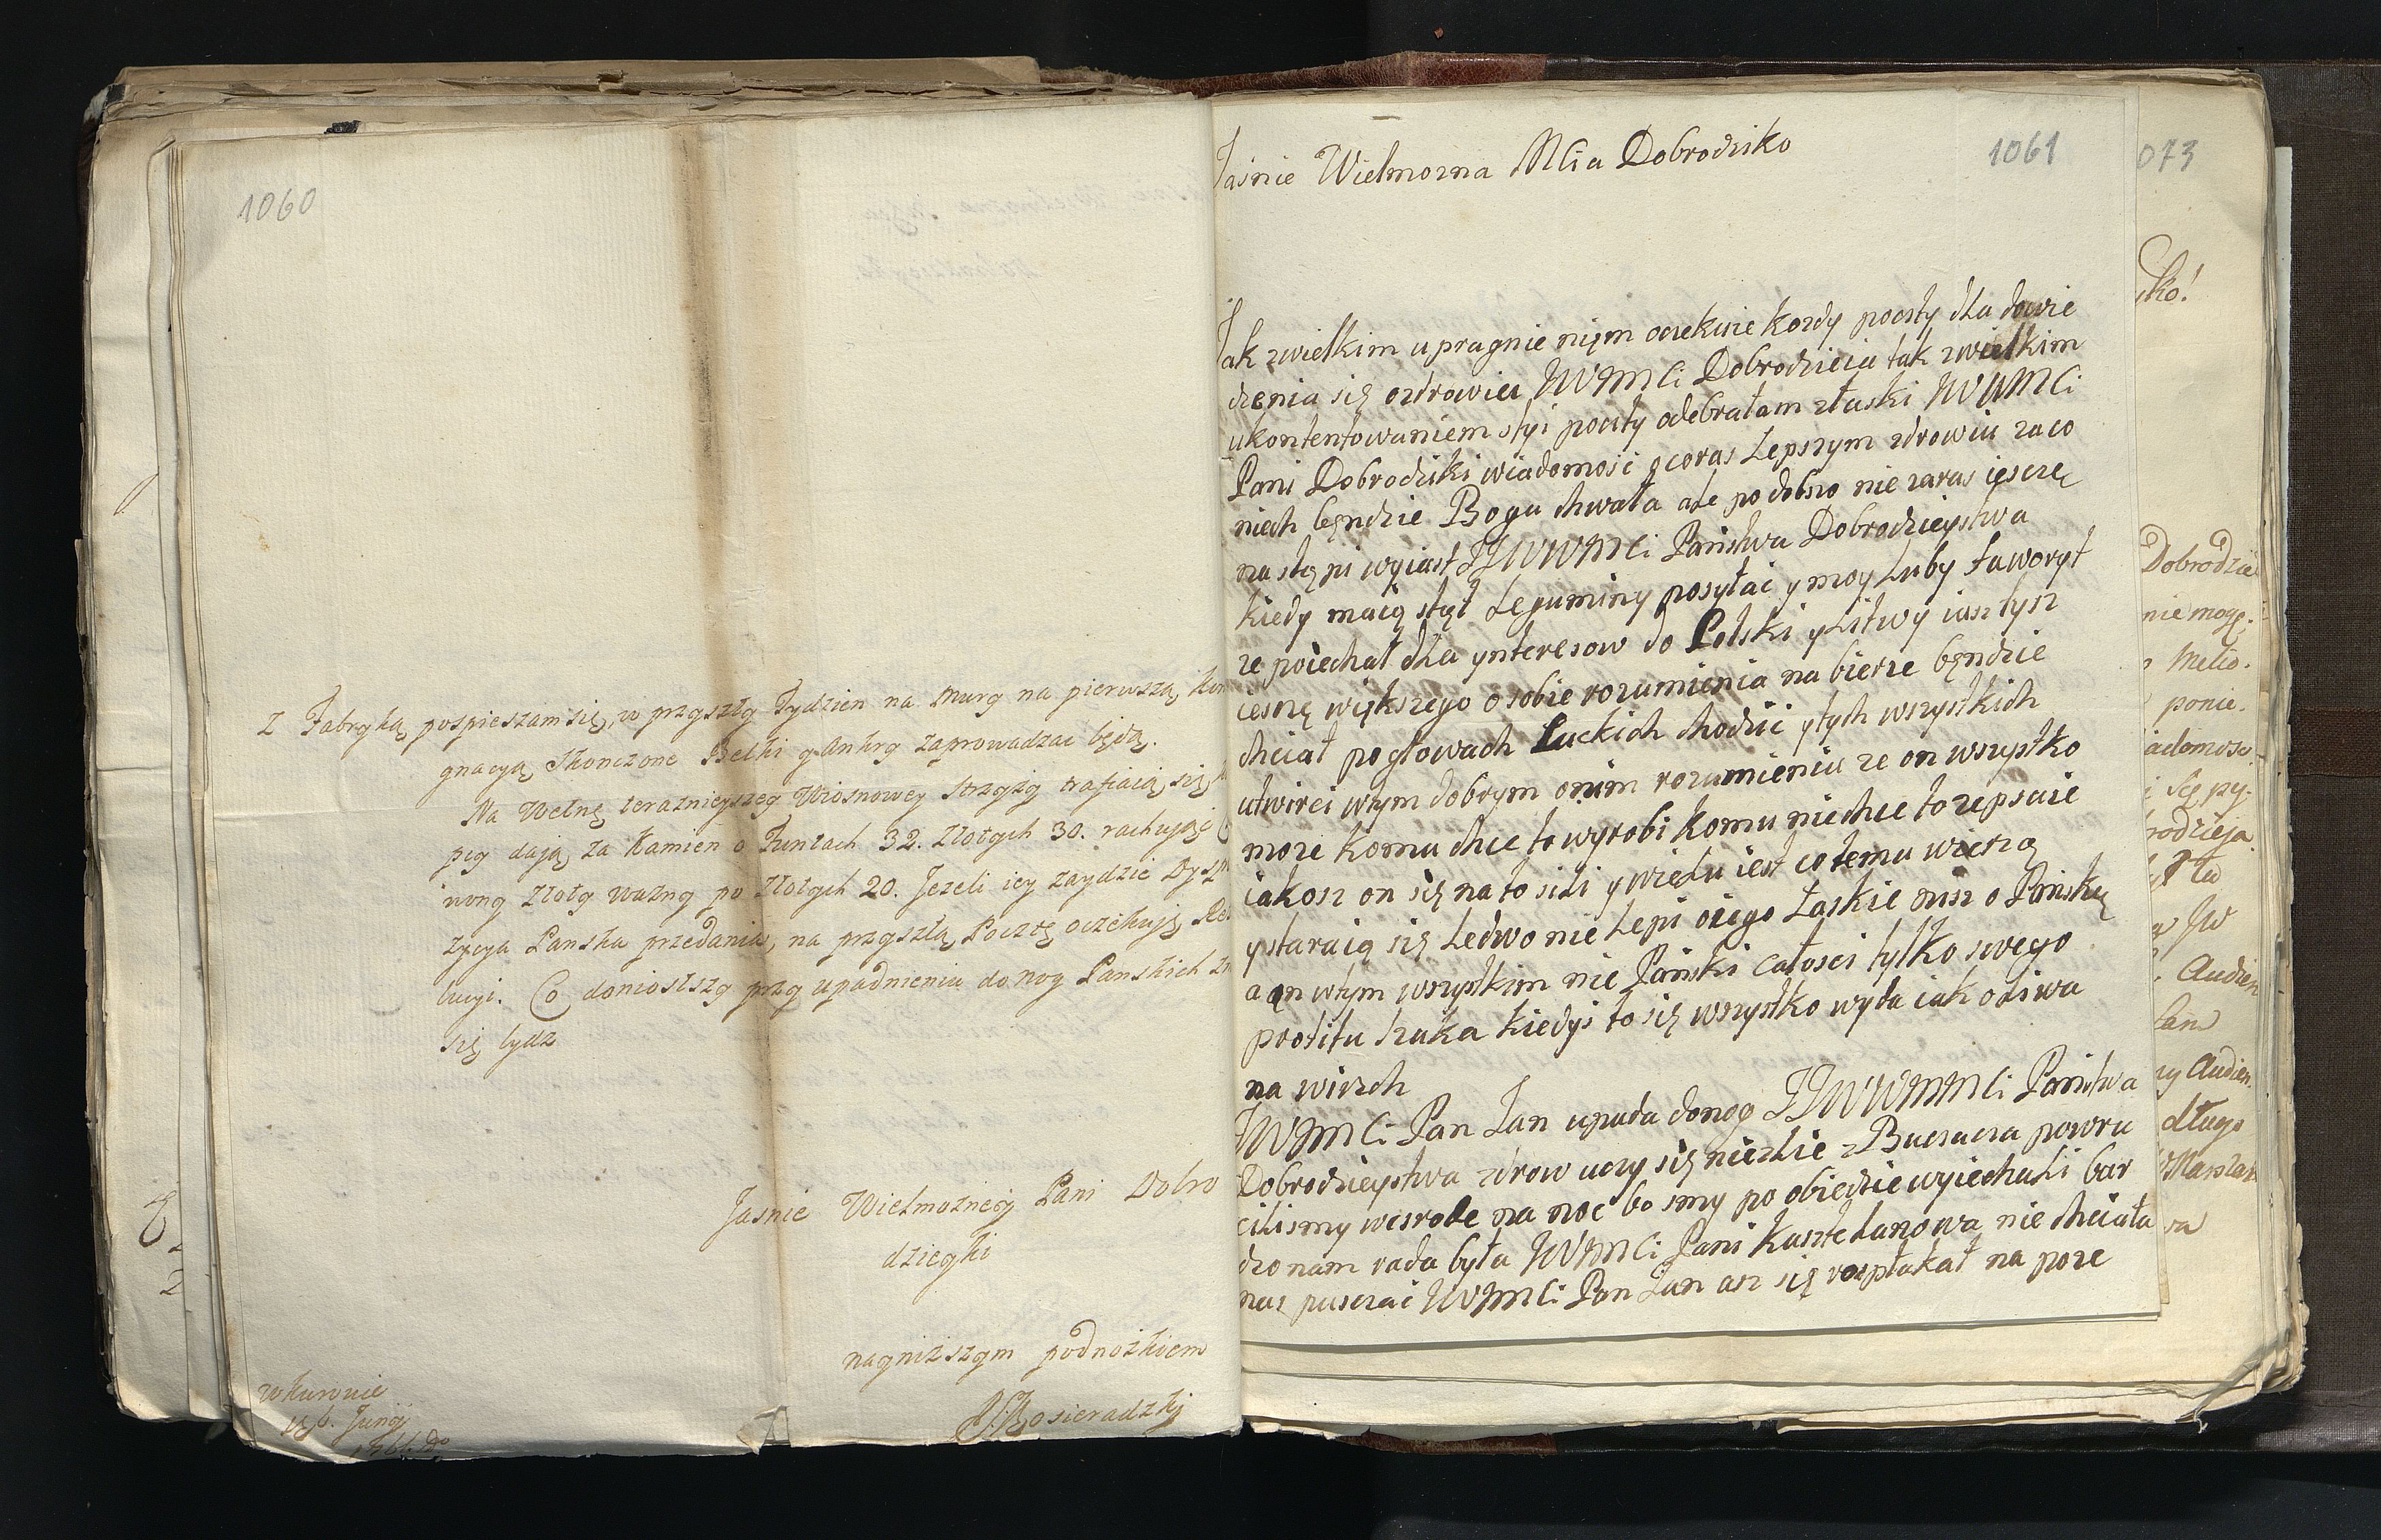 1060
Z Fabryką pospieszam się, w przyszły Tydzien na Murg na pierwszą
gnacyą skonczone Belki y Ankry zaprowadzac będą.
Na Wełnę teraznieyszey Wiosnowey Strzyży trafiaią się
pcy dają za Kamien o Funtach 32. Złotych 30. rachując
wony Złoty ważny po Złotych 20. Jezeli iey zaydzie
zycya Panska przedania, na przyszłą Pocztę oczekuję
lucyi. Co doniosłszy przy upadnieniu do nog Panskich
się bydz
Jasnie Wielmozney Pani Dobro
dzieyki
nayniższym podnożkiem
Sieradzky
w Kurowie
Junij
1061
Jasnie Wielmozna Mcia Dobrodziko
Jak zwielkim upragnienięm oczekuie kozdy poczty dla dowie
dzęnia się ozdrowiu JWJMCi Dobrodzieia tak zwielkim
ukontentowaniem styi poczty odebrałam złaski JWWMCi
Pani Dobrodziki wiadomosc o coras Lepszym zdrowiu zaco
niech będzie Bogu chwała ale podobno nie zaras ięszczę
nastąpi wyiast JJWWMCi Państwa Dobrodzieystwa
kiedy maią stąt Leguminy posyłac y moy Luby faworyt
ze poiechał dla ynteresow do Polski y Litwy iusz tysz
ieszczę większego o sobie rozumienia nabierze będzie
chciał po głowach Luckich chodzic y tych wszystkich
utwirci wtym dobrym onim rozumieniu ze on wszystko
moze komu chce to wyrobi komu niechce to zepsuie
iakosz on się na to sili y wielu iest co temu wierzą
y staraią się Ledwo nie Lepi oiego Łaskie nisz o Pańską
a on wtym wszystkim nie Pański całosci tylko swego
profitu szuka kiedys to się wszystko wyda iak oliwa
na wirzch
JWJMCi Pan Jan upada donog JJWWMMCi Państwa
Dobrodzieystwa zdrow uczy się niezlie z Buczacza powru
cilismy wesrode na noc bo smy po obiedzie wyiechali bar
dzo nam rada była JWJMCi Pani Kasztelanowa nie chciała
nas puszczac JWJMCi Pan Jan asz się rospłakał na poze
073
ko!
Dobrodzie
nie mogę.
Melio.
ponie.
iadomosc
rodzieja
JW
Audien
Audien.
długo